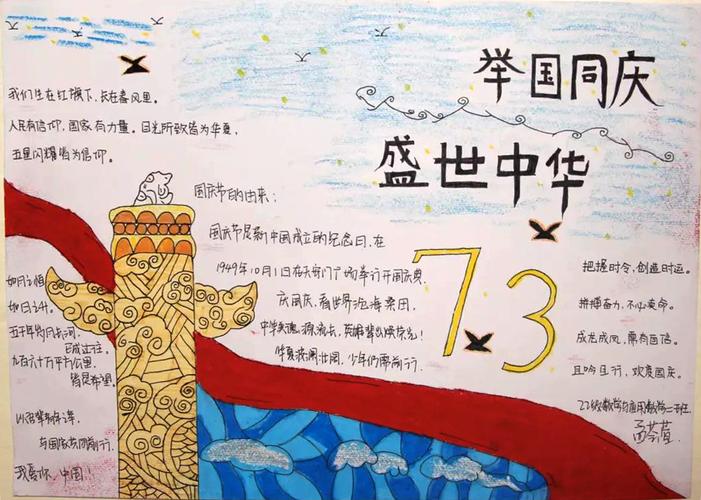 举国同庆
盛世中华
我们生在红旗下，长在春风里。
人民有信仰，国家有力量。目光所致皆为华夏，
五星闪耀皆为信仰。
国庆节的由来：
国庆节是新中国成立的纪念日，在
1949年10月1日在天安门广场举行开国庆典。
庆国庆，看世界沧海桑田，
中华英魂源流长，英雄辈出
华夏疾
少年们需前行。
73
如月之恒
如日之升。
五千年岁月长河，
已成过往。
九百六十万平方公里，
皆是希望。
以吾辈
与国家共同前行。
我爱你，中国！
把握时令，创造时运。
拼搏奋力，不心卖命。
成龙成凤，需有画培。
且吟且行，欢度国庆。
22级数学与应用数学二班
孟